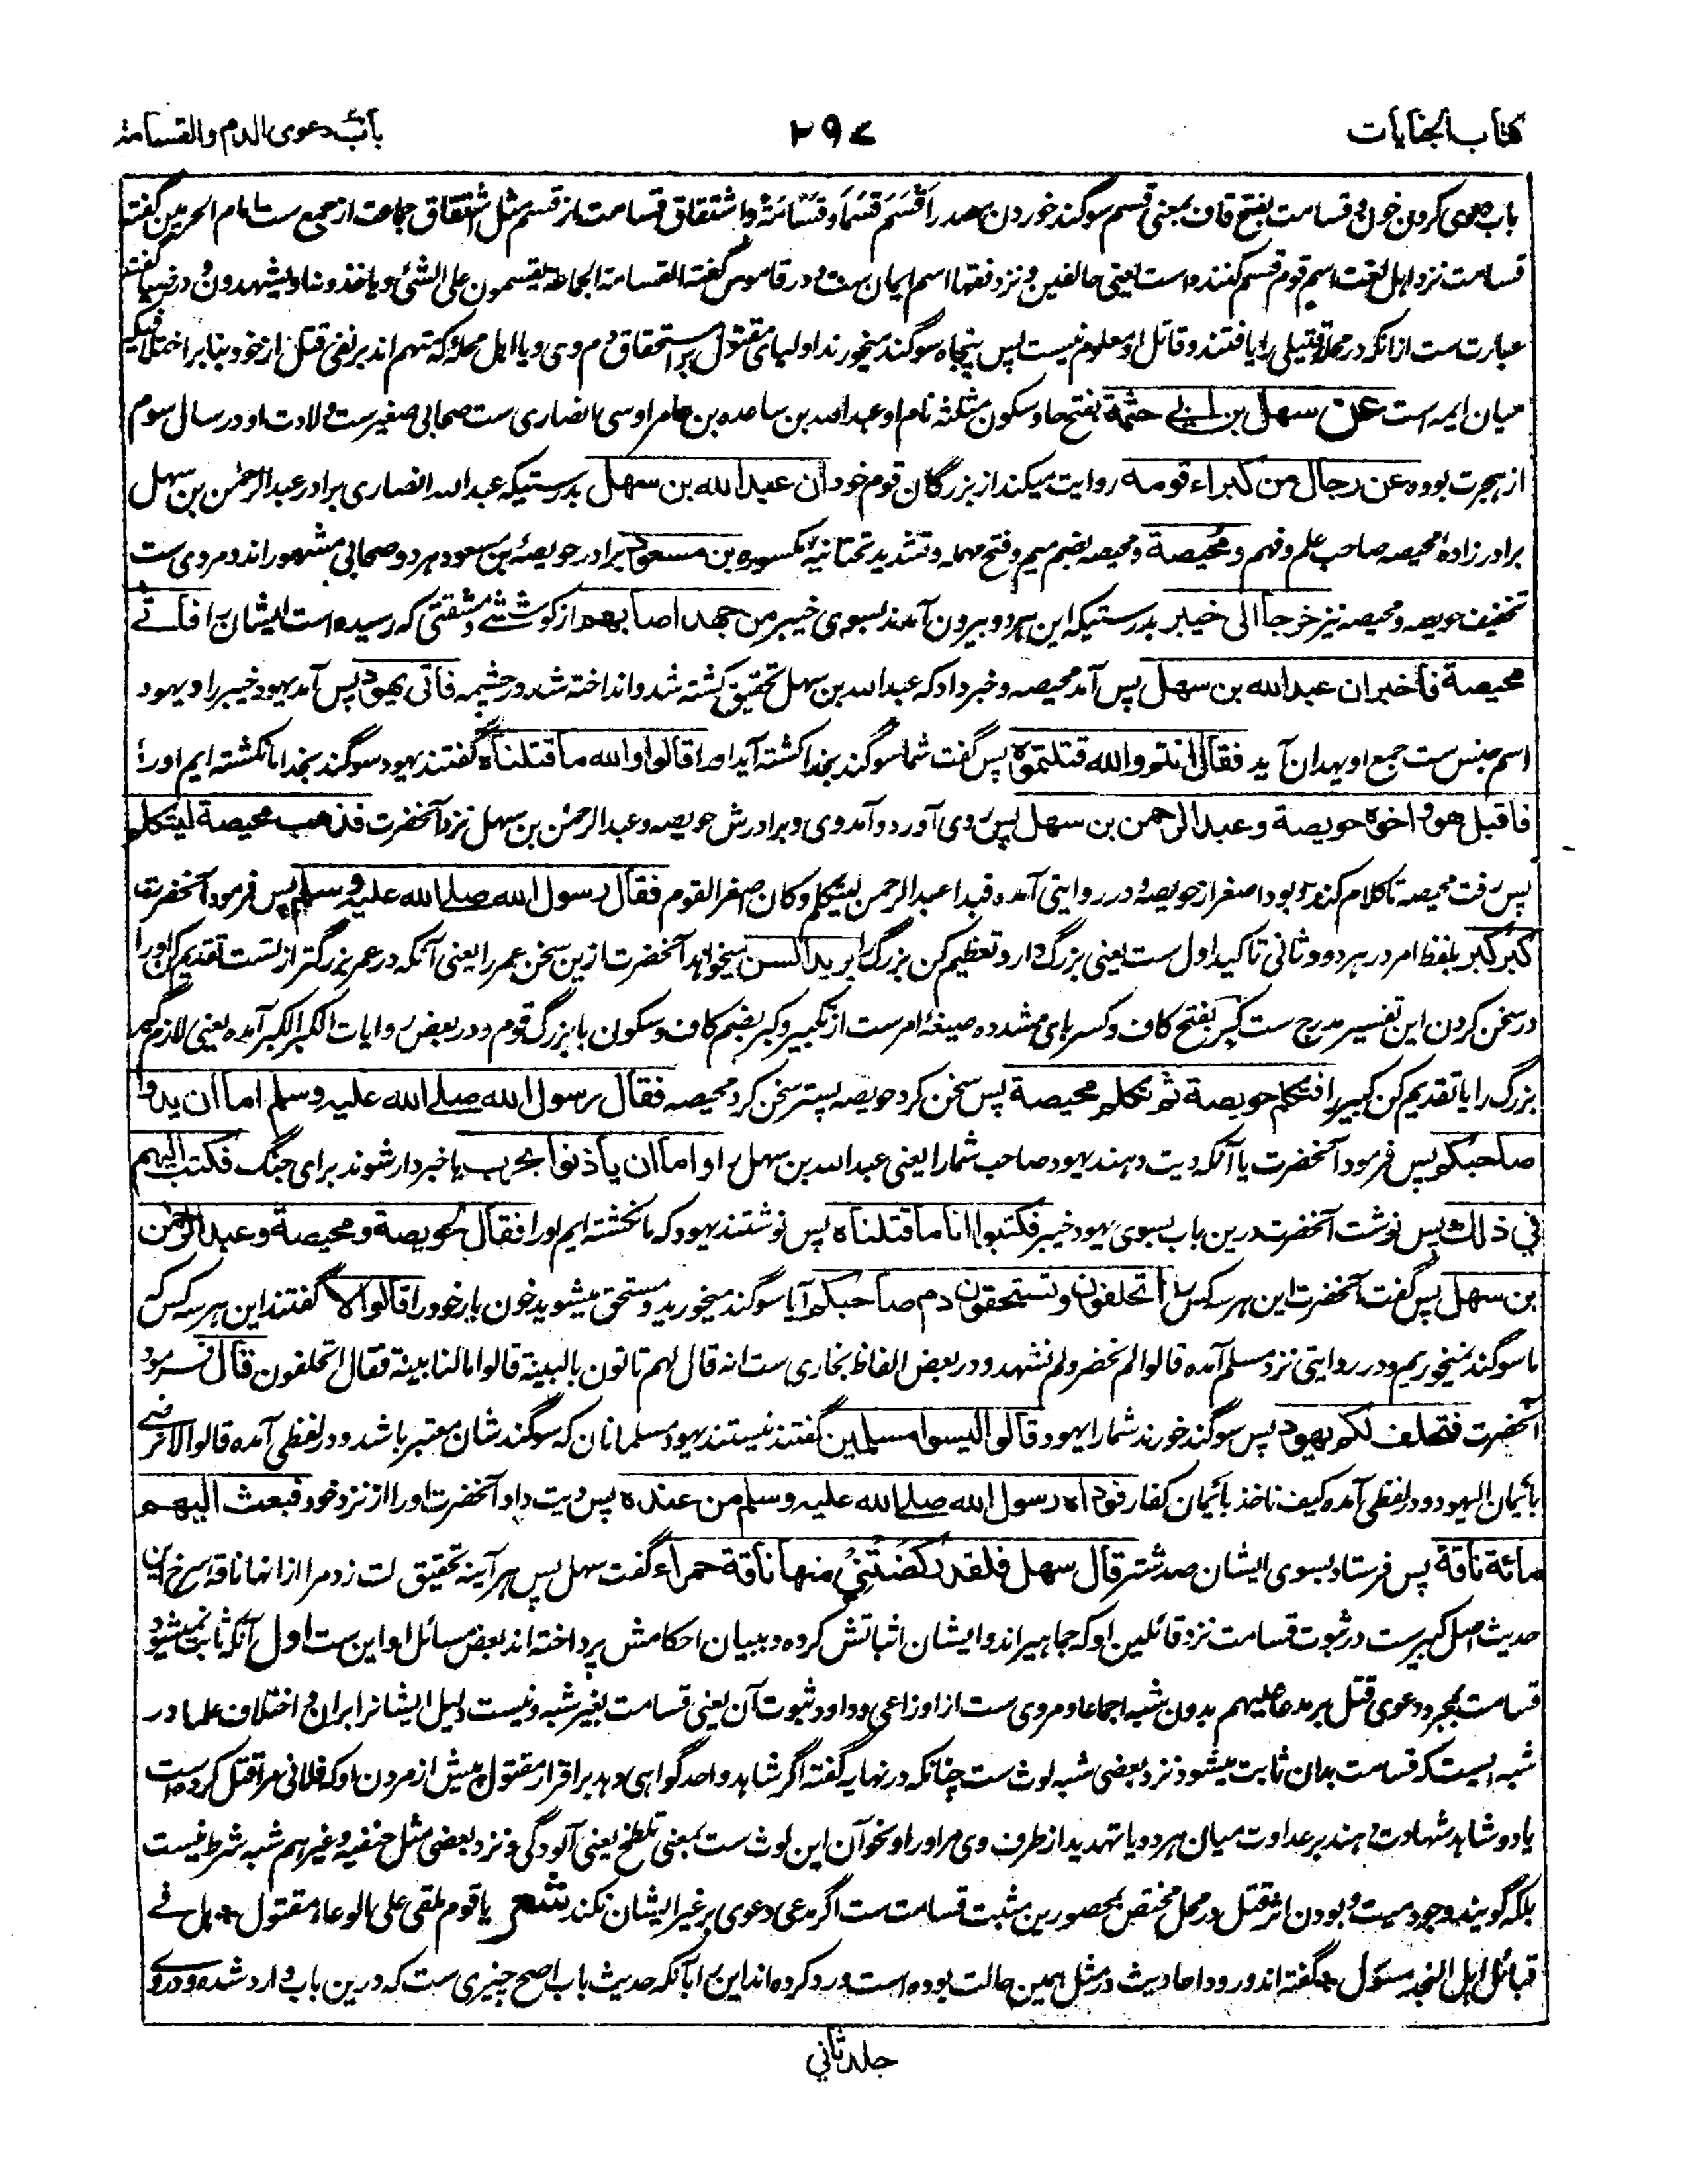 کتاب الجنایات
۲۹۷
باب دعوی الدم والقسامة
باب دعوی کردن خون و قسامت بفتح قاف بمعنی قسم سوگند خوردن مصدر اَقْسَمَ قَسَماً وقَسَامَةً واشتقاق قسامت از قسم مثل اشتقاق جماعت از جمع ست امام الحرمین گفته
قسامت نزد اهل لغت اسم قوم قسم کننده است یعنی حالفین و نزد فقها اسم ایمان ست و در قاموس گفته القسامة الجماعة یقسمون علی الشئ و یاخذونه او یشهدون و در ضیا گفته
عبارت ست ازانکه در محله قتیلی را یافتند و قاتل او معلوم نیست پس پنجاه سوگند میخورند اولیای مقتول بر استحقاق دم وی و یا اهل محله که متهم اند بر نفی قتل از خود بنا بر اختلافیکه
میان ایمه است عن سهل بن ابی حثمة بفتح حا و سکون مثلثه نام او عبد الله بن ساعده بن عامر اوسی انصاری ست صحابی صغیرست ولادت او در سال سوم
از هجرت بوده عن رجال من کبراء قومه روایت میکند از بزرگان قوم خود ان عبد الله بن سهل بدرستیکه عبد الله انصاری برادر عبد الرحمٰن بن سهل
برادر زاده محیصه صاحب علم و فهم و محیصة و محیصه بضم میم و فتح مهمله و تشدید تحتانیه مکسوره بن مسعود برادر حویصه بن مسعود هر دو صحابی مشهور اند و مروی ست
تخفیف حویصه و محیصه نیز خرجا الی خیبر بدرستیکه این هر دو بیرون آمدند بسوی خیبر من جهد اصابهم از کوشش و مشقتی که رسیده است ایشان را فاتے
محیصة فاخبر ان عبد الله بن سهل پس آمد محیصه و خبر داد که عبد الله بن سهل تحقیق کشته شد و انداخته شد در چشمه فاتی یهود پس آمد یهود خیبر را و یهود
اسم جنس ست جمع او یهدان آید فقال انتم والله قتلتموه پس گفت شما سوگند بخدا کشته آید او را قالوا والله ما قتلناه گفتند یهود سوگند بخدا ما نکشته ایم او را
فاقبل هو و اخوه حویصة و عبد الرحمن بن سهل پس روی آورد و آمد وی و برادرش حویصه و عبد الرحمٰن بن سهل نزد آنحضرت فذهب محیصة لیتکلم
پس رفت محیصه تا کلام کند و بود اصغر از حویصه و در روایتی آمده فبدا عبد الرحمن لیتکلم و کان اصغر القوم فقال رسول الله صلے الله علیہ وسلم پس فرمود آنحضرت
کبر کبر بلفظ امر در هر دو و ثانی تاکید اول ست یعنی بزرگ دار و تعظیم کن بزرگ را یرید السن میخواهد آنحضرت ازین سخن عمر را یعنی آنکه در عمر بزرگتر از تست تقدیم کن او را
در سخن کردن این تفسیر مدرج ست کبر بفتح کاف و کسر بای مشدده صیغه امر ست از تکبیر و کبر بضم کاف و سکون با بزرگ قوم و در بعض روایات الکبر الکبر آمده یعنی لازم گیر
بزرگ را یا تقدیم کن کبیر را فتکلم حویصة ثم تکلم محیصة پس سخن کرد حویصه پستر سخن کرد محیصه فقال رسول الله صلے الله علیہ وسلم اما ان یدوا
صاحبکم پس فرمود آنحضرت یا آنکه دیت دهند یهود صاحب شما را یعنی عبد الله بن سهل را و اما ان یاذنوا بحرب یا خبردار شوند برای جنگ فکتب الیهم
فی ذلک پس نوشت آنحضرت درین باب بسوی یهود خیبر فکتبوا انا ما قتلناه پس نوشتند یهود که ما نکشته ایم او را فقال لحویصة و محیصة و عبد الرحمٰن
بن سهل پس گفت آنحضرت این هر سه کس را اتحلفون و تستحقون دم صاحبکم آیا سوگند میخورید و مستحق میشوید خون یار خود را قالوا لا گفتند این هر سه کس که
ما سوگند نمیخوریم و در روایتی نزد مسلم آمده قالوا لم نحضر ولم نشهد و در بعض الفاظ بخاری ست انه قال لهم تاتون بالبینة قالوا مالنا بینة فقال اتحلفون قال فرمود
آنحضرت فتحلف لکم یهود پس سوگند خورند شما را یهود قالوا لیسوا مسلمین گفتند نیستند یهود مسلمانان که سوگند شان معتبر باشد و در لفظی آمده قالوا لا نرضے
بایمان الیهود و در لفظی آمده کیف ناخذ بایمان کفار فوداه رسول الله صلے الله علیہ وسلم من عنده پس دیت داد آنحضرت او را از نزد خود فبعث الیهم
مائة ناقة پس فرستاد بسوی ایشان صد شتر قال سهل فلقد رکضتنی منها ناقة حمراء گفت سهل پس هر آینه تحقیق لت زد مرا ازانها ناقه سرخ این
حدیث اصل کبیر ست در ثبوت قسامت نزد قائلین او که جماهیر اند و ایشان اثباتش کرده و ببیان احکامش پرداخته اند بعض مسائل او این ست اول آنکه ثابت نمیشود
قسامت بمجرد دعوی قتل بر مدعا علیهم بدون شبه اجماعا و مروی ست از اوزاعی و داود ثبوت آن یعنی قسامت بغیر شبه و نیست دلیل ایشانرا بران و اختلاف علما در
شبه ایست که قسامت بدان ثابت میشود نزد بعضی شبه لوث ست چنانکه در نهایه گفته اگر شاهد واحد گواهی دهد بر اقرار مقتول پیش از مردن او که فلانی مرا قتل کرده است
یا دو شاهد شهادت دهند بر عداوت میان هر دو یا تهدید از طرف وی مر او را و نحو آن این لوث ست بمعنی تلطخ یعنی آلودگی و نزد بعضی مثل حنفیه و غیرهم شبه شرط نیست
بلکه گویند وجود میت و بودن اثر قتل در محل مختص بمحصورین مثبت قسامت ست اگر مدعی دعوی بر غیر ایشان نکند شعر یا قوم ملقی علی الوعاء مقتول * هل فے
قبائل اهل النجد مسئول * گفته اند ورود احادیث در مثل همین حالت بوده است و رد کرده اند این را بآنکه حدیث باب اصح چیزی ست که درین باب وارد شده و در وے
جلد ثانی